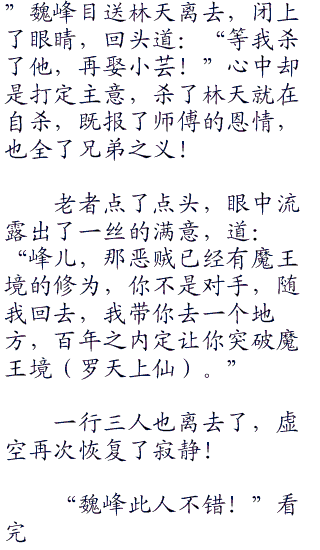 ”魏峰目送林天离去，闭上
了眼睛，回头道：“等我杀
了他，再娶小芸！”心中却
是打定主意，杀了林天就在
自杀，既报了师傅的恩情，
也全了兄弟之义！
老者点了点头，眼中流
露出了一丝的满意，道：
“峰儿，那恶贼已经有魔王
境的修为，你不是对手，随
我回去，我带你去一个地
方，百年之内定让你突破魔
王境（罗天上仙）。”
一行三人也离去了，虚
空再次恢复了寂静！
“魏峰此人不错！”看
完